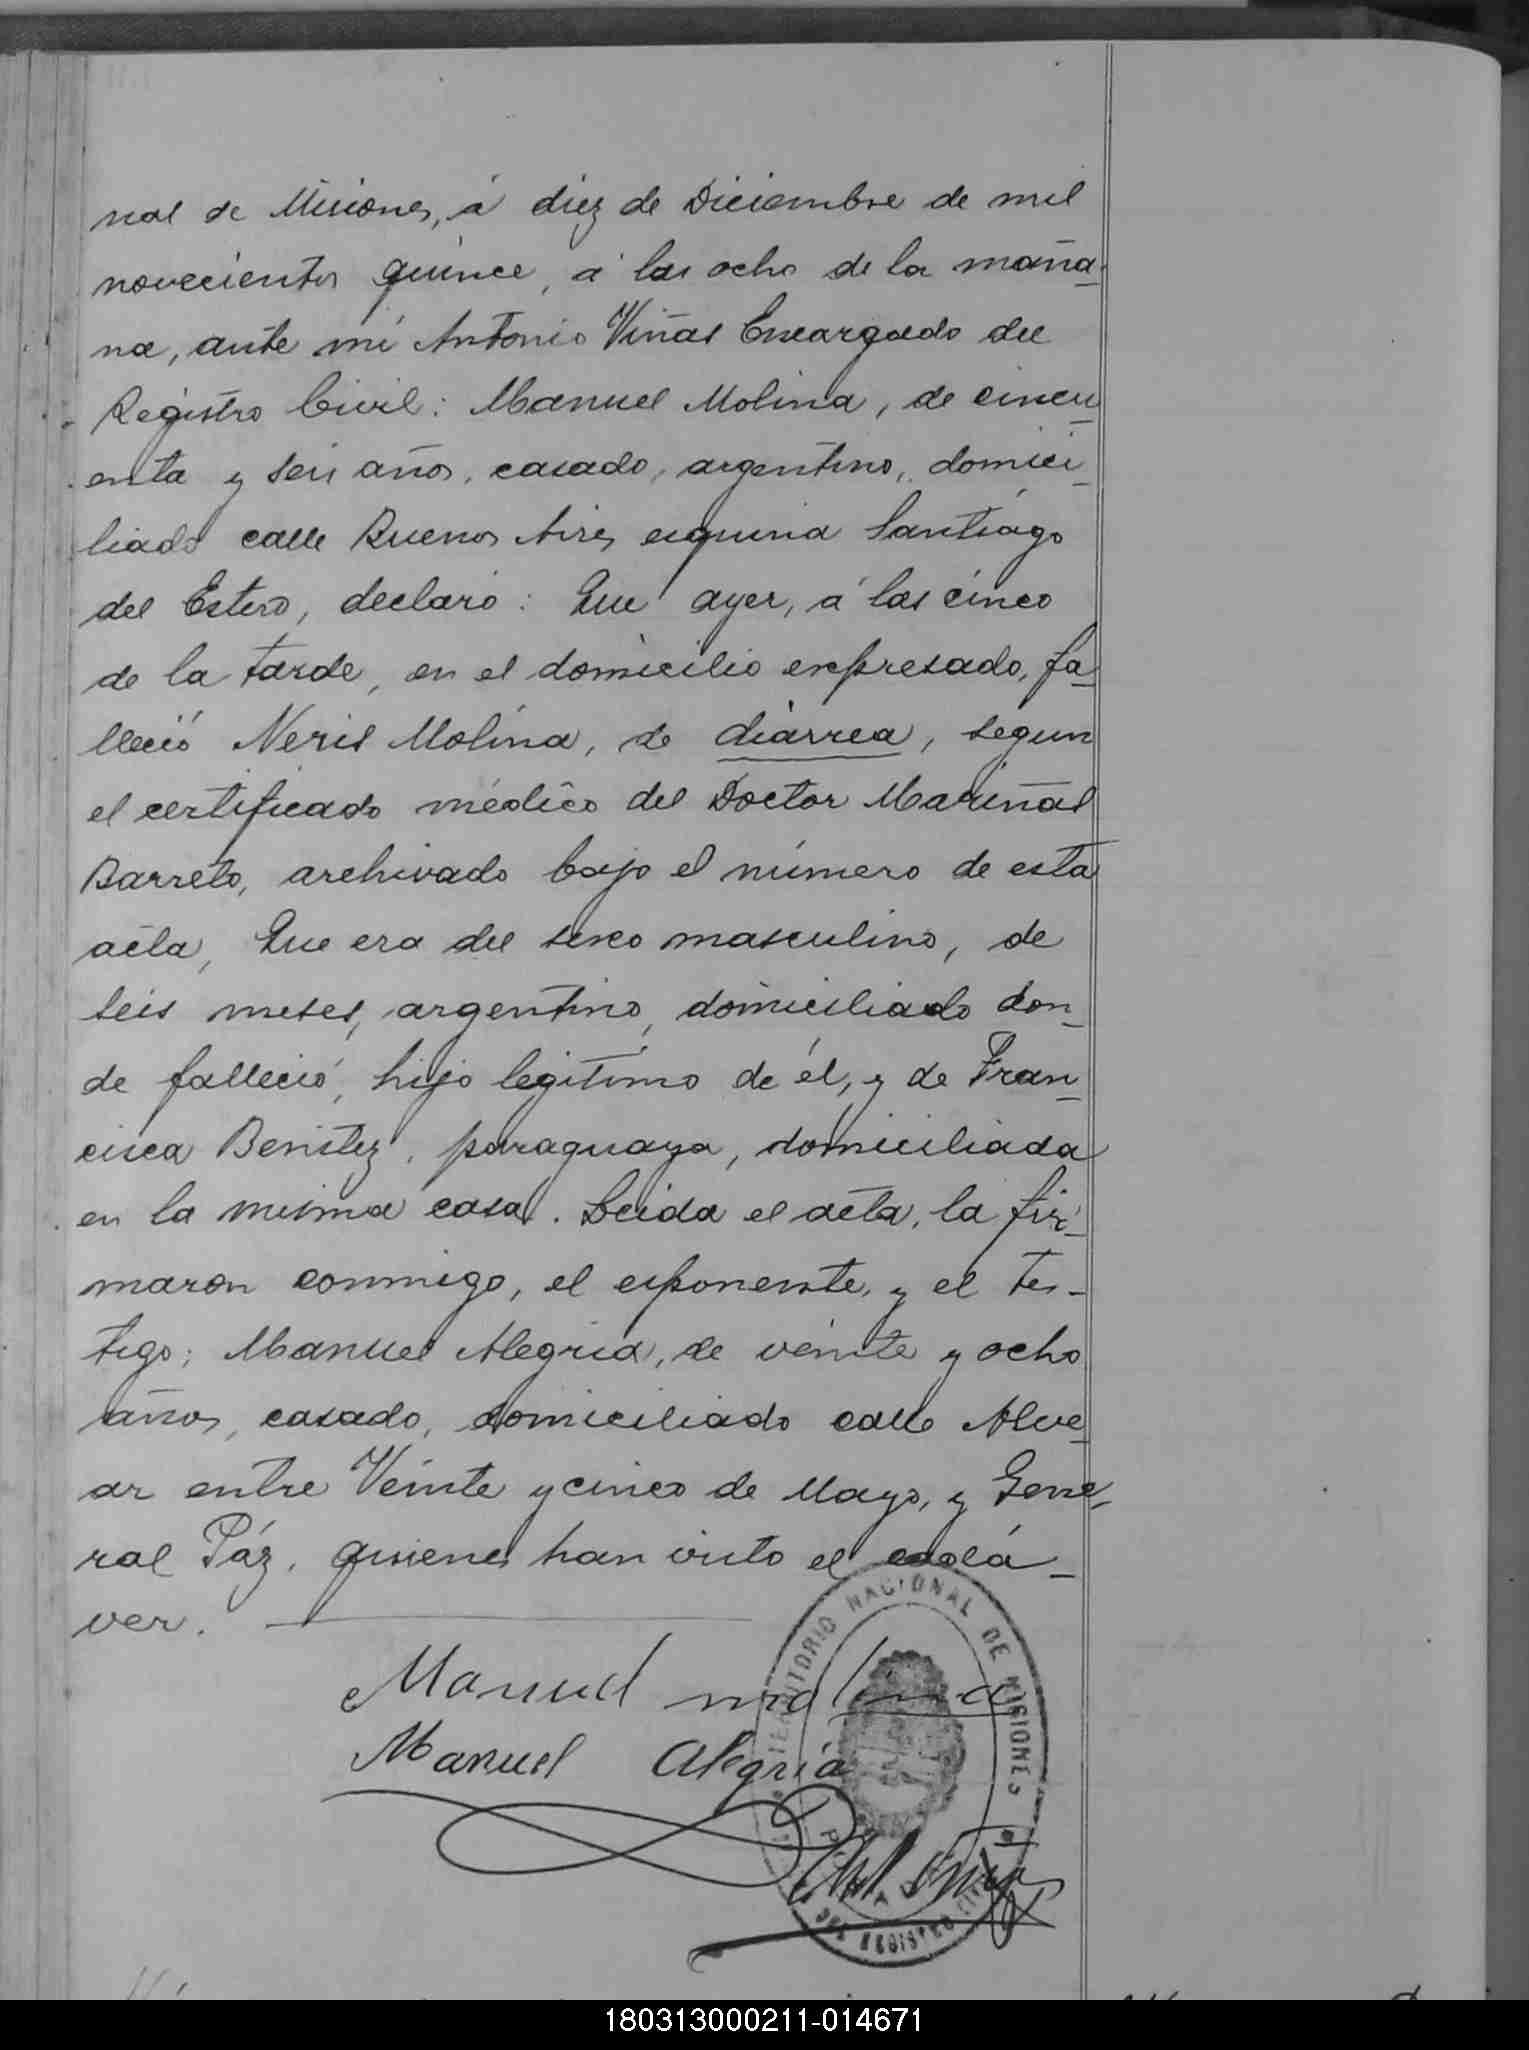 nal de Misiones, á diez de Diciembre de mil
novecientos quince, á las ocho de la maña-
na, ante mí Antonio Viñas Encargado del
Registro Civil: Manuel Molina, de cincu
enta y seis años, casado, argentino, domici
liado calle Buenos Aires esquina Santiago
del Estero, declaró: Que ayer, á las cinco
de la tarde, en el domicilio expresado, fa-
lleció Neris Molina, de diarrea, segun
el certificado médico del Doctor Mariñas
Barreto, archivado bajo el número de esta
acta, Que era del sexo masculino, de
seis meses, argentino, domiciliado don-
de falleció, hijo legítimo de él, y de Fran-
cisca Benitez, paraguaya, domiciliada
en la misma casa. Leida el acta, la fir-
maron conmigo, el exponente, y el tes-
tigo; Manuel Alegria, de veinte y ocho
años, casado, domiciliado calle Alve-
ar entre Veinte y cinco de Mayo, y Gene-
ral Páz, quienes han visto el cadá-
ver.
Manuel molina
Manuel Alegría
TERRITORIO NACIONAL DE MISIONES
DEL REGISTRO CIVIL
180313000211-014671